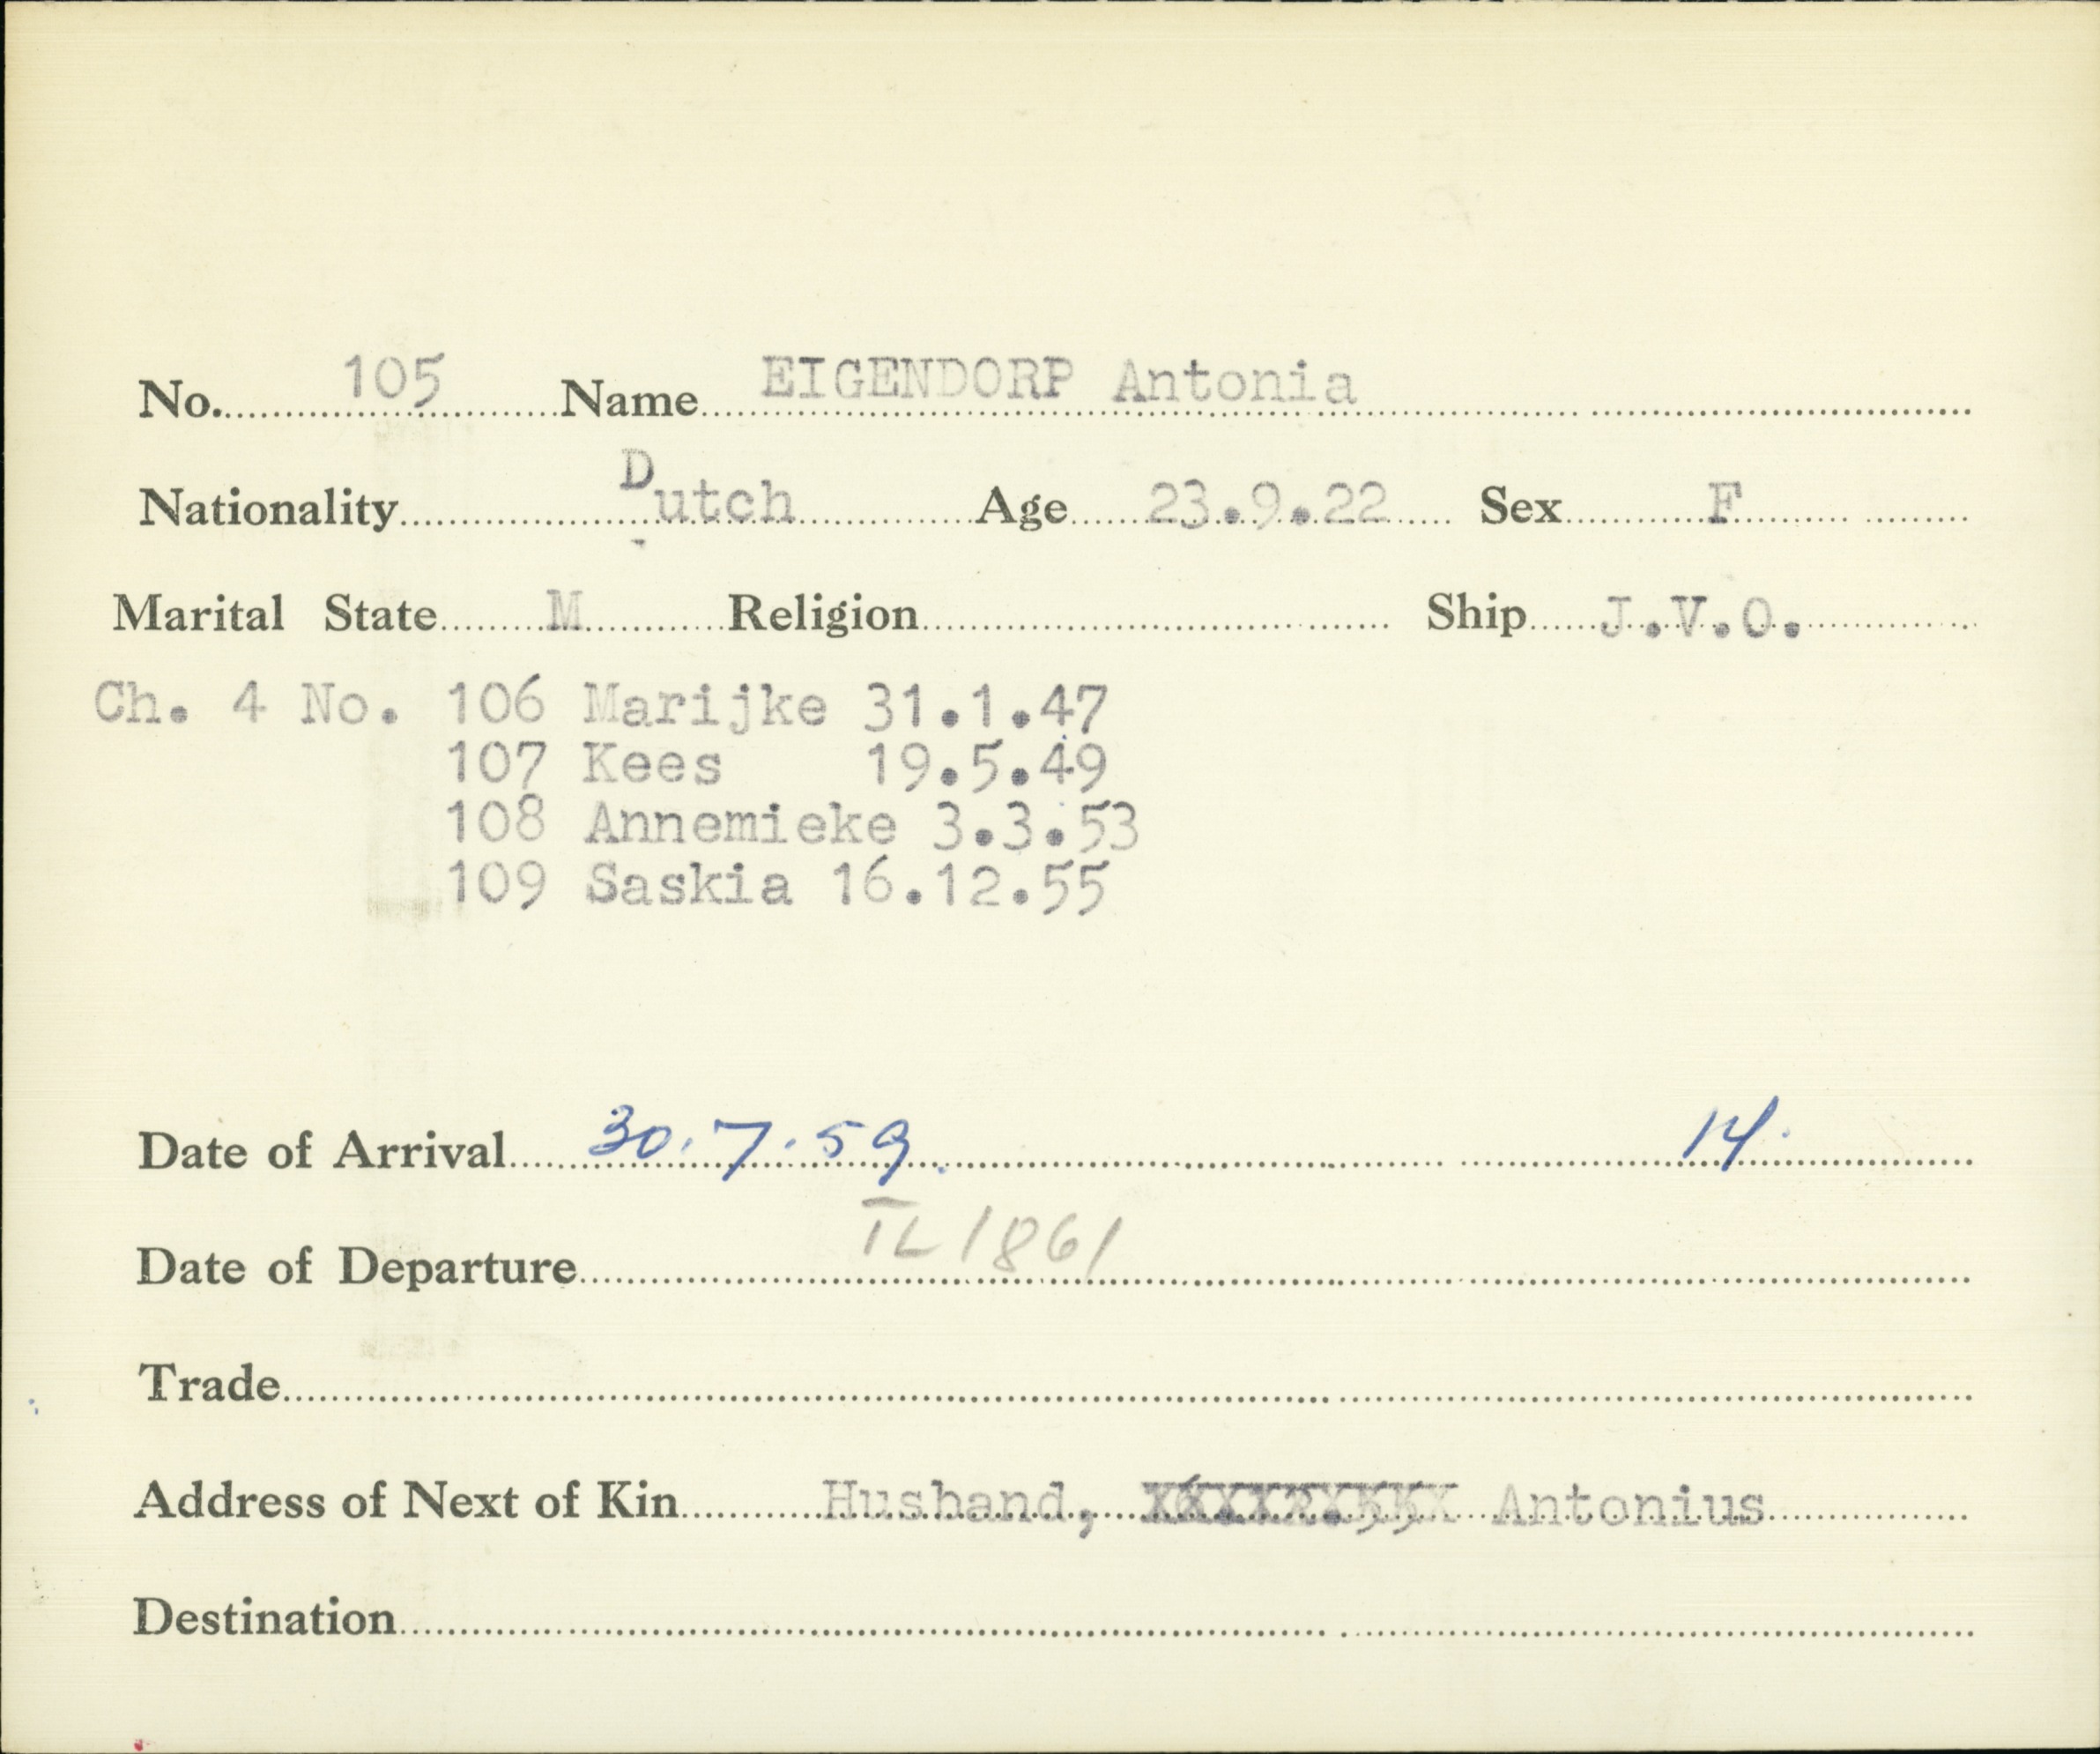 No. 105 Name EIGENDORP Antonia
Nationality Dutch Age 23.9.22 Sex F
Marital State M Religion Ship J.V.O.
Ch. 4 No. 106 Marijke 31.1.47
107 Kees 19.5.49
108 Annemieke 3.3.53
109 Saskia 16.12.55
Date of Arrival 30.7.59. 14.
Date of Departure TL 1861
Trade
Address of Next of Kin Husband, Antonius
Destination